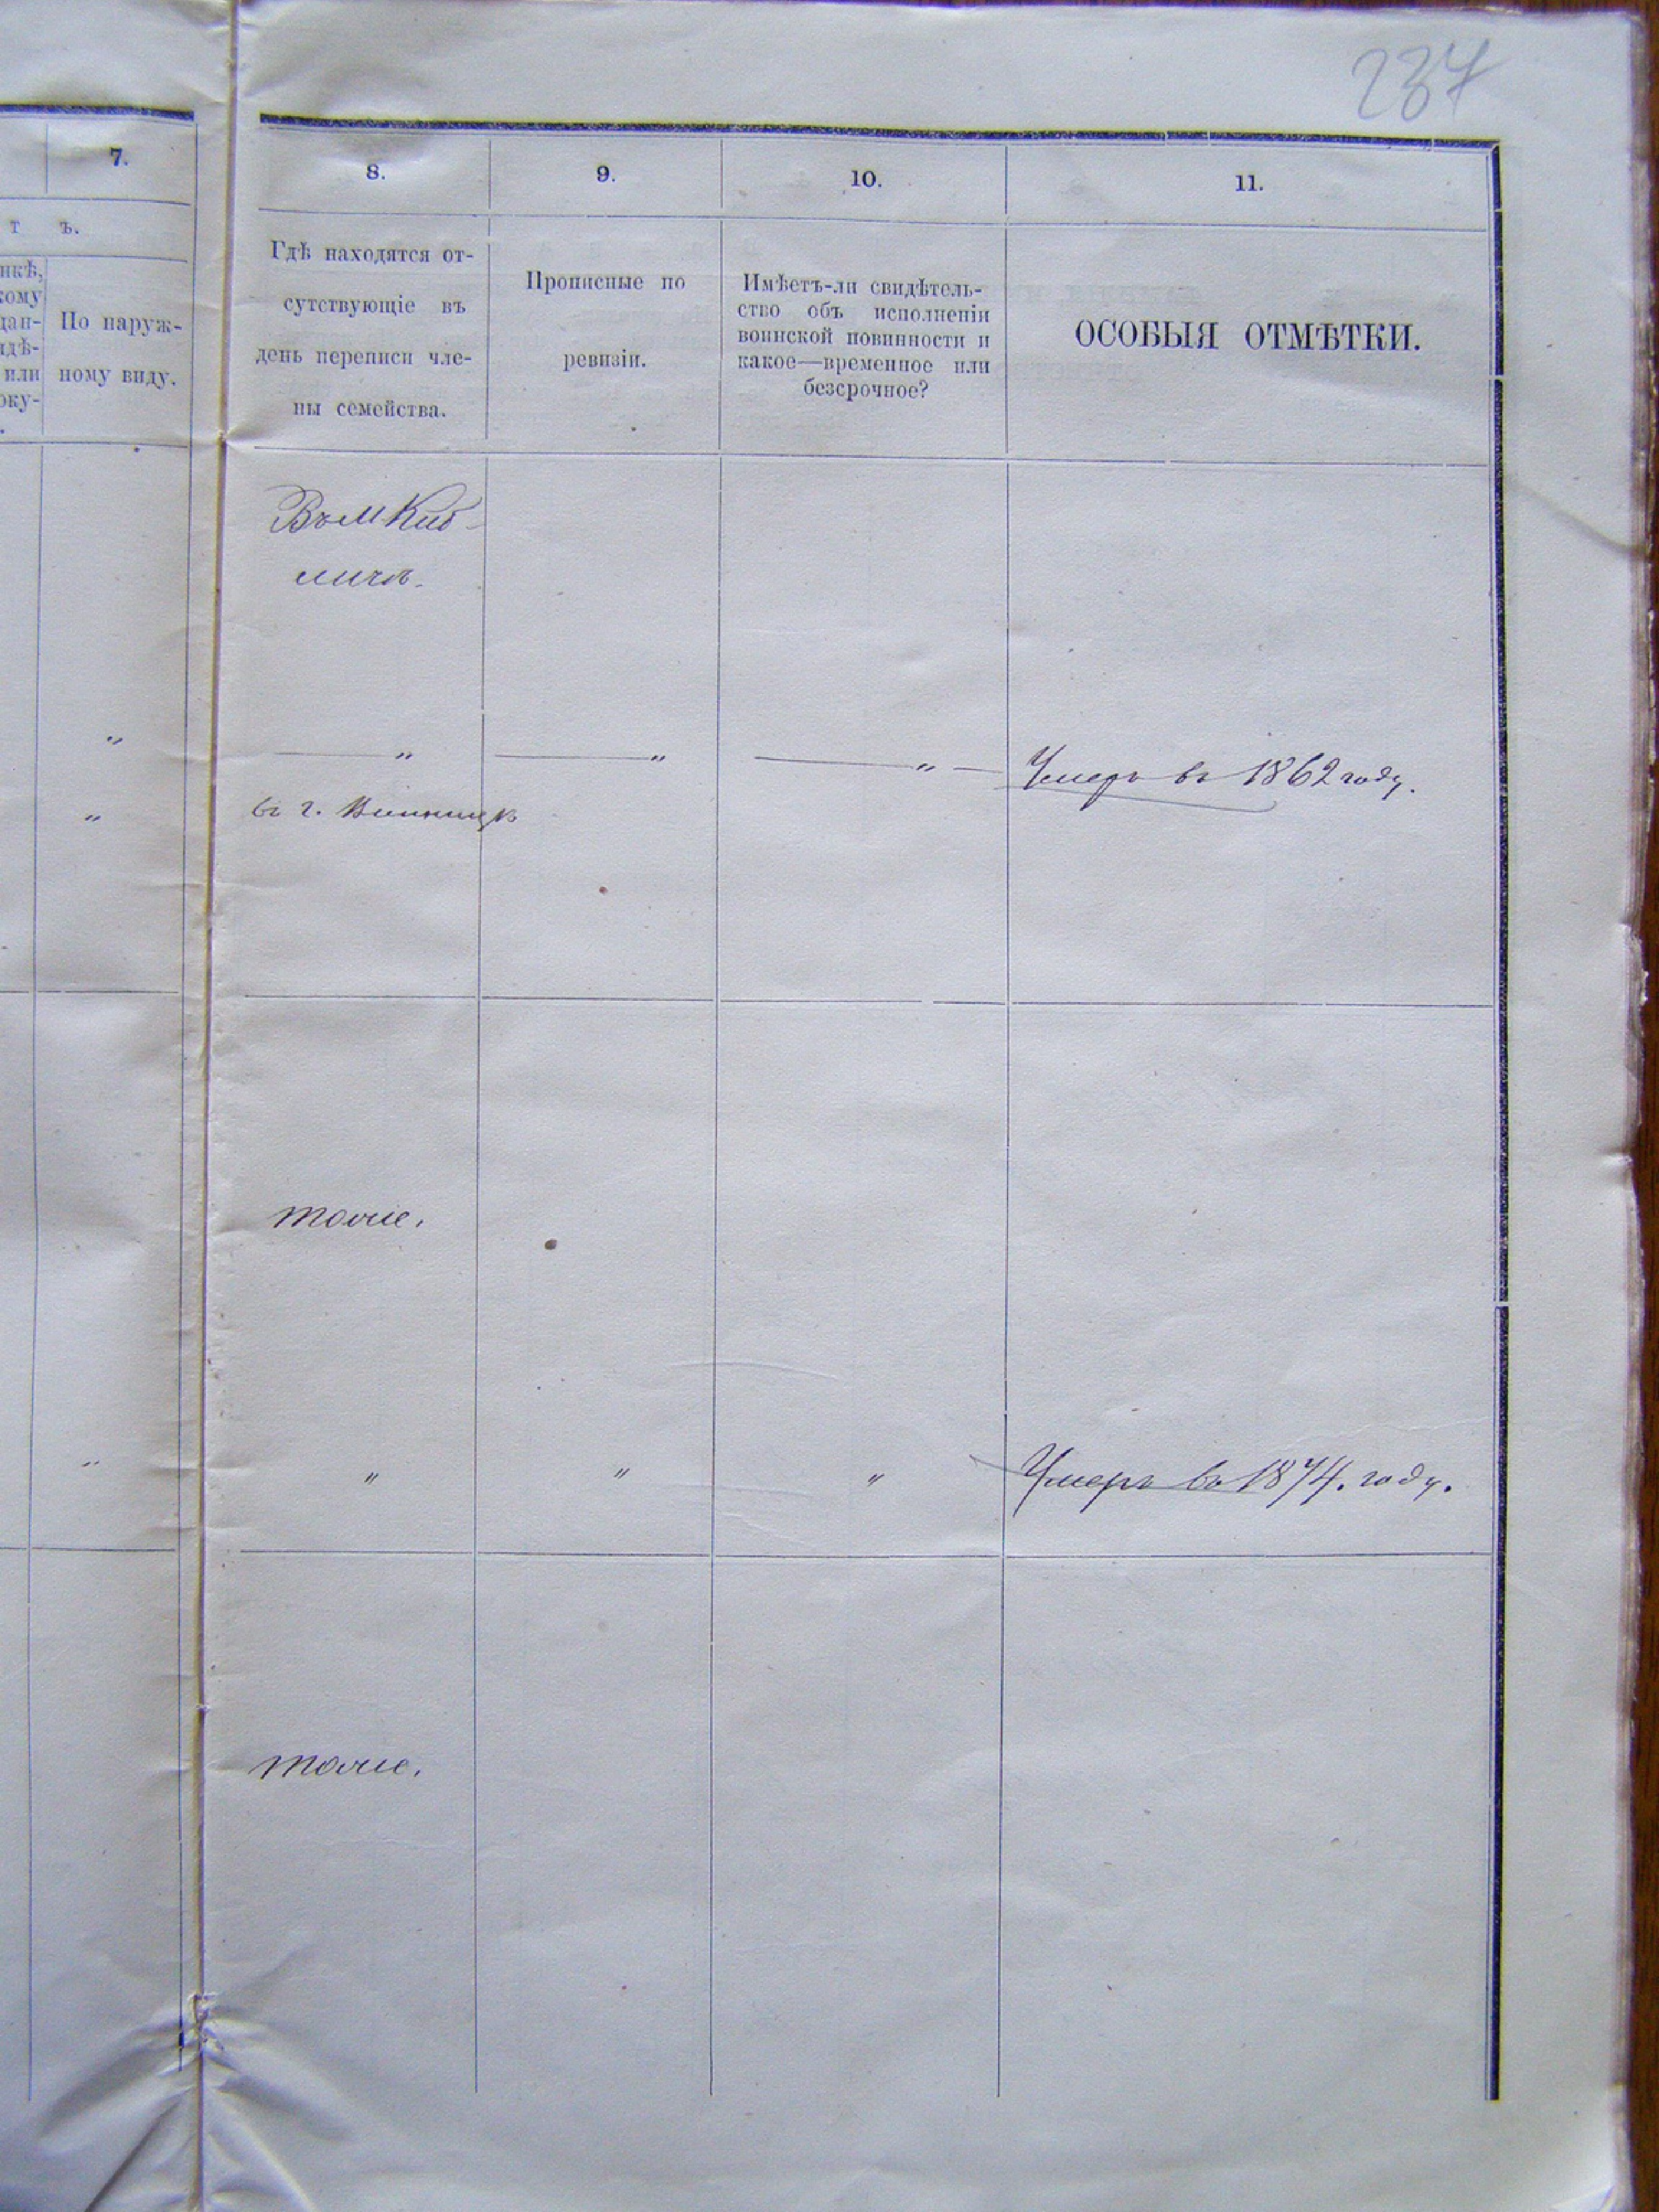 237
7.
8.
9.
10.
11.
т ъ.
икѣ,
кому
дан-
идѣ-
или
оку-
По наруж-
ному виду.
Гдѣ находятся от-
сутствующіе въ
день переписи чле-
ны семейства.
Прописные по
ревизіи.
Имѣетъ-ли свидѣтель-
ство объ исполненіи
воинской повинности и
какое—временное или
безсрочное?
ОСОБЫЯ ОТМѢТКИ.
Въ м Киб-
личѣ.
" — " — " — " — Умеръ въ 1862 году.
" въ г. Винницѣ
тоже.
" " " " Умеръ въ 1874. году.
тоже.